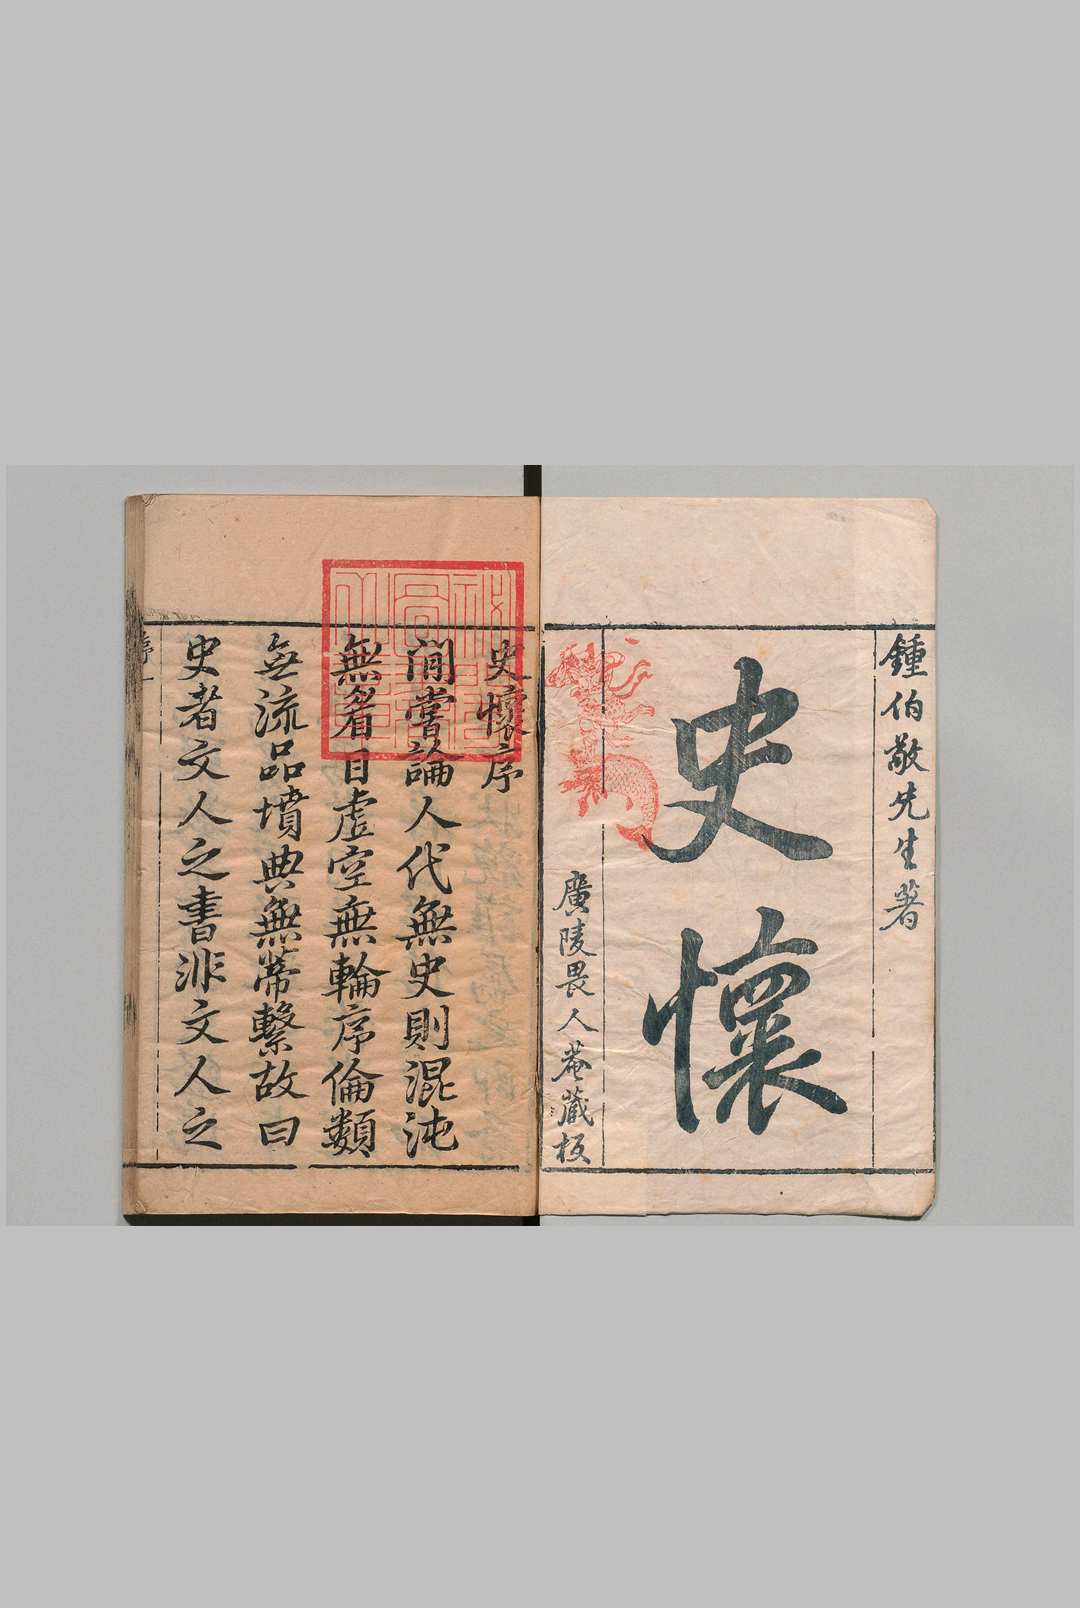 鍾伯敬先生著
史懷
廣陵畏人菴藏板
史懷序
間嘗論人代無史則混沌
無眉目虛空無輪序倫類
無流品墳典無蔕繫故曰
史者文人之書非文人之
序 一